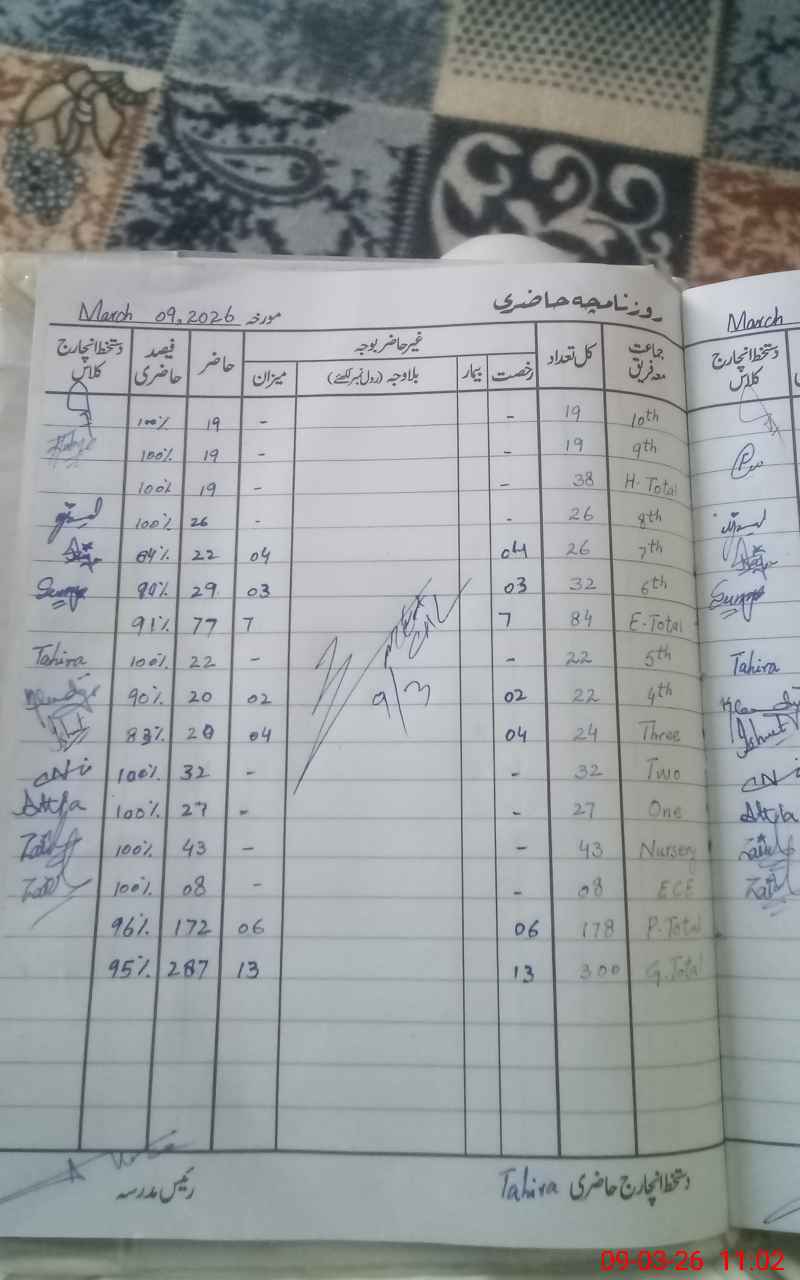 روزنامچہ حاضری
March 09, 2026 مورخہ
جماعت معہ فریق | کل تعداد | غیر حاضر بوجہ | حاضر | فیصد حاضری | دستخط انچارج کلاس
رخصت | بیمار | بلاوجہ (رول نمبر لکھئے) | میزان
10th 19 - - 19 100%
9th 19 - - 19 100%
H. Total 38 - - 19 100%
8th 26 - - 26 100%
7th 26 04 04 22 84%
6th 32 03 03 29 90%
E-Total 84 7 7 77 91%
5th 22 - - 22 100% Tahira
4th 22 02 02 20 90%
Three 24 04 04 20 83%
Two 32 - - 32 100%
One 27 - - 27 100%
Nursery 43 - - 43 100%
ECE 08 - - 08 100%
P. Total 178 06 06 172 96%
G. Total 300 13 13 287 95%
9/3
دستخط انچارج حاضری Tahira
رئیس مدرسہ
March
دستخط انچارج کلاس
Tahira
09-03-26 11:02